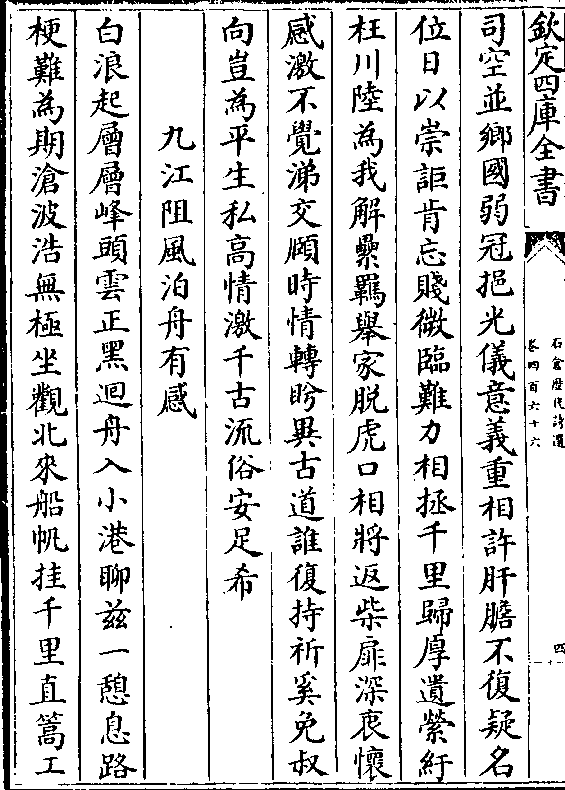 欽定四庫全書
石倉歷代詩選
卷四百六十六
四
司空並鄉國弱冠挹光儀意義重相許肝膽不復疑名
位日以崇詎肯忘賤微臨難力相拯千里歸厚遺縈紆
枉川陸為我解纍羈舉家脫虎口相將返柴扉深衷懷
感激不覺涕交頤時情轉盻異古道誰復持祈奚免叔
向豈為平生私高情激千古流俗安足希
九江阻風泊舟有感
白浪起層層峰頭雲正黑迴舟入小港聊兹一憩息路
梗難為期滄波浩無極坐觀北來船帆挂千里直篙工